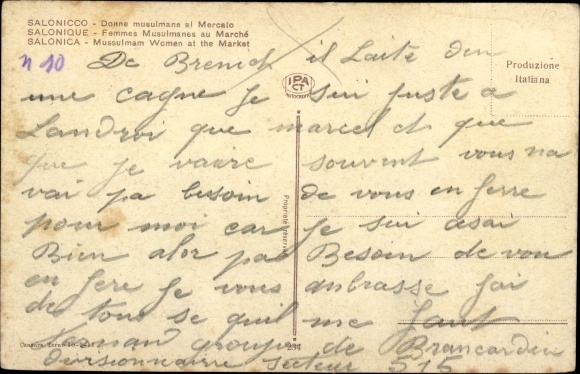 SALONICCO - Donne musulmane al Mercato
SALONIQUE - Femmes Musulmanes au Marché
SALONICA - Mussulmam Women at the Market
n 10
Produzione
Italiana
IPA
CT
AUTOCROM
De il Laite den
une cagne je sui juste a
Landroi que marcel et que
que je vaure souvent vous na
vai pa besoin de vous en ferre
pour moi car je sui asai
Bien alor pas Besoin de vou
en fere je vous anbrasse jai
de tous se quil me faut
groupe de Brancardier
divisionnaire secteur 515
Proprieté réservée
231